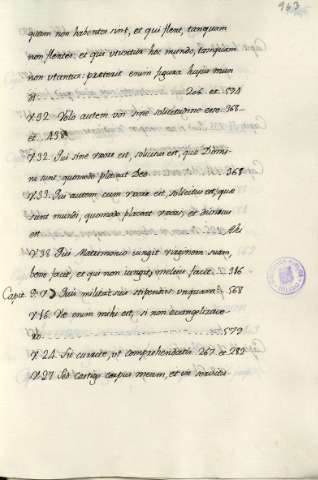 963
quam non habentes sint, et qui flent, tanquam
non flentes. et qui utuntur hoc mundo, tanquam
non utantur. præterit enim figura hujus mun
di 206 et 594
V. 32. Volo autem vos sine solicitudine esse. 368.
et 438
V. 32. Qui sine uxore est, solicitus est, quæ Domi-
ni sunt, quomodo placeat Deo. 368
V. 33. Qui autem cum uxore est, solicitus est, quæ
sunt mundi, quomodo placeat uxori, et divisus
est. Ibi
V. 38. Qui Matrimonio iungit virginem suam,
bene facit, et qui non iungit, melius facit. 316
Capit. 9. V. 7 Quis militat suis stipendiis unquam? 568
V. 16. Væ enim mihi est, si non evangelizave-
ro. 579
V. 24. Sic currite, ut comprehendatis 267. et 289
V. 27 Sed castigo corpus meum, et in